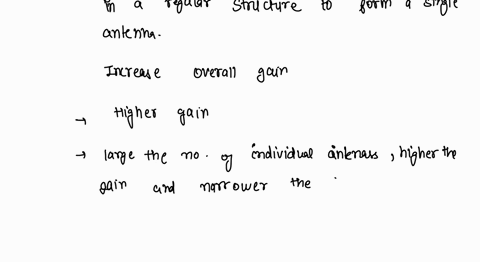 in a regular structure to form a single
antenna.
Increase overall gain
→ Higher gain
→ large the no. of individual antennas, higher the
gain and narrower the